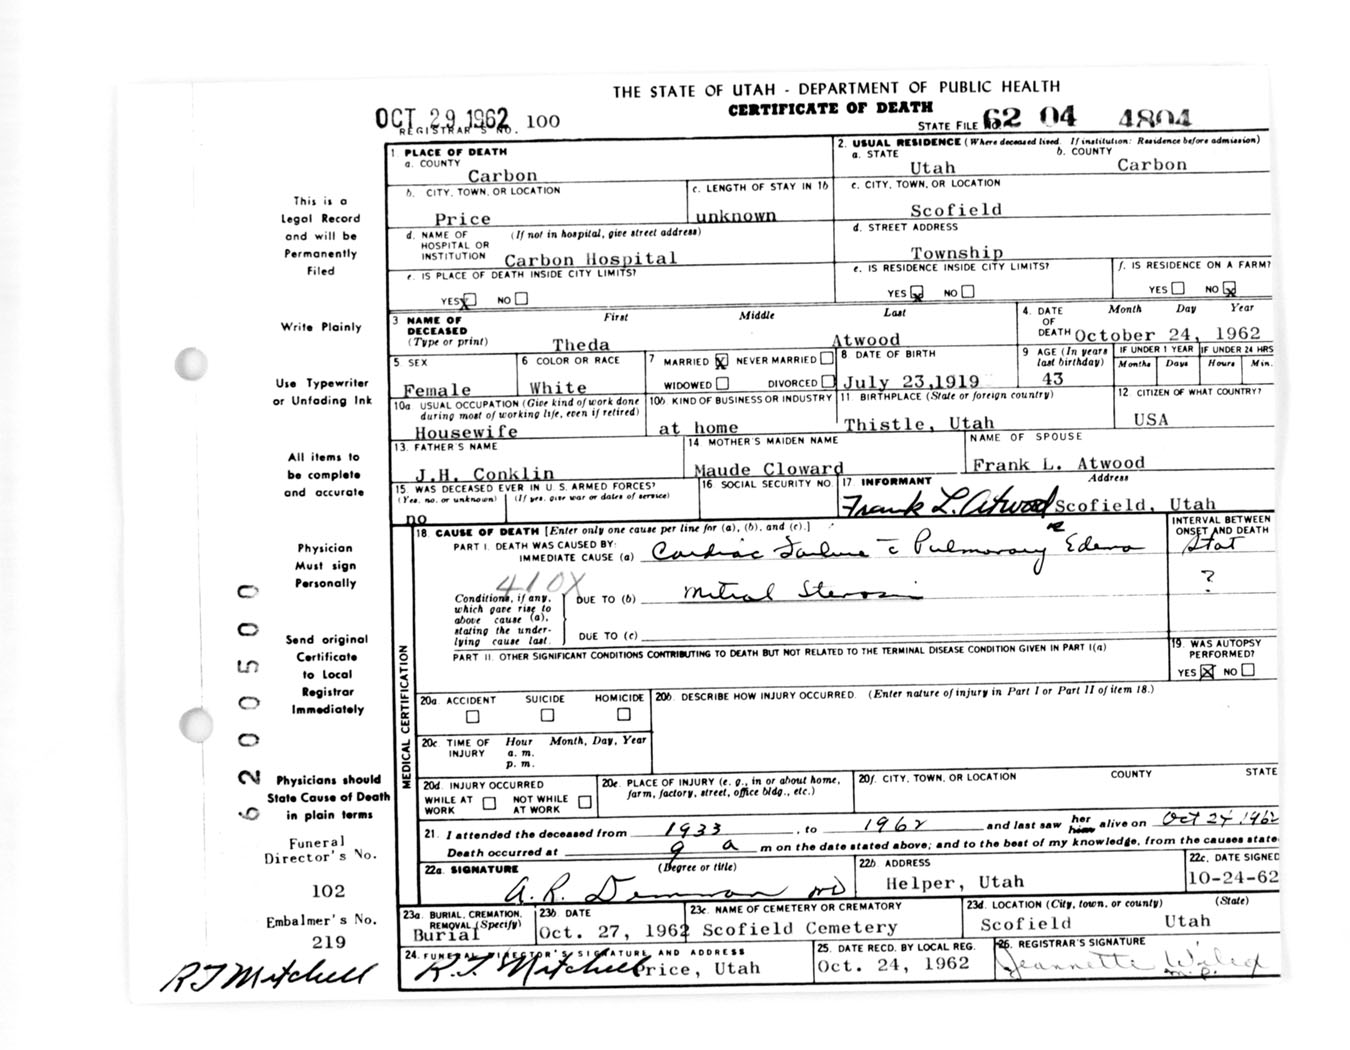 THE STATE OF UTAH - DEPARTMENT OF PUBLIC HEALTH
CERTIFICATE OF DEATH
OCT 29 1962
REGISTRAR'S NO. 100
STATE FILE NO. 62 04 4804
This is a
Legal Record
and will be
Permanently
Filed
Write Plainly
Use Typewriter
or Unfading Ink
All items to
be complete
and accurate
Physician
Must sign
Personally
Send original
Certificate
to Local
Registrar
Immediately
Physicians should
State Cause of Death
in plain terms
Funeral
Director's No.
102
Embalmer's No.
219
RJ Mitchell
6200500
1 PLACE OF DEATH
a. COUNTY
Carbon
2. USUAL RESIDENCE (Where deceased lived. If institution: Residence before admission)
a. STATE b. COUNTY
Utah Carbon
b. CITY, TOWN, OR LOCATION
Price
c. LENGTH OF STAY IN 1b
unknown
c. CITY, TOWN, OR LOCATION
Scofield
d. NAME OF (If not in hospital, give street address)
HOSPITAL OR
INSTITUTION Carbon Hospital
d. STREET ADDRESS
Township
e. IS PLACE OF DEATH INSIDE CITY LIMITS?
YES X NO
e. IS RESIDENCE INSIDE CITY LIMITS?
YES X NO
f. IS RESIDENCE ON A FARM?
YES NO X
3 NAME OF DECEASED (Type or print)
First Middle Last
Theda Atwood
4. DATE OF DEATH Month Day Year
October 24, 1962
5 SEX
Female
6 COLOR OR RACE
White
7 MARRIED X NEVER MARRIED
WIDOWED DIVORCED
8 DATE OF BIRTH
July 23, 1919
9 AGE (In years last birthday)
43
IF UNDER 1 YEAR IF UNDER 24 HRS
Months Days Hours Min.
10a. USUAL OCCUPATION (Give kind of work done
during most of working life, even if retired)
Housewife
10b. KIND OF BUSINESS OR INDUSTRY
at home
11. BIRTHPLACE (State or foreign country)
Thistle, Utah
12 CITIZEN OF WHAT COUNTRY?
USA
13. FATHER'S NAME
J.H. Conklin
14 MOTHER'S MAIDEN NAME
Maude Cloward
NAME OF SPOUSE
Frank L. Atwood
15. WAS DECEASED EVER IN U. S. ARMED FORCES?
(Yes, no, or unknown) (If yes, give war or dates of service)
no
16 SOCIAL SECURITY NO.
17. INFORMANT Address
Frank L. Atwood Scofield, Utah
18. CAUSE OF DEATH [Enter only one cause per line for (a), (b), and (c).]
INTERVAL BETWEEN
ONSET AND DEATH
PART I. DEATH WAS CAUSED BY:
IMMEDIATE CAUSE (a) Cardiac Failure c̄ Pulmonary Edema Stat
410X
Conditions, if any,
which gave rise to
above cause (a),
stating the under-
lying cause last.
DUE TO (b) Mitral Stenosis ?
DUE TO (c)
PART II. OTHER SIGNIFICANT CONDITIONS CONTRIBUTING TO DEATH BUT NOT RELATED TO THE TERMINAL DISEASE CONDITION GIVEN IN PART I(a)
19. WAS AUTOPSY
PERFORMED?
YES X NO
MEDICAL CERTIFICATION
20a. ACCIDENT SUICIDE HOMICIDE
20b. DESCRIBE HOW INJURY OCCURRED. (Enter nature of injury in Part I or Part II of item 18.)
20c. TIME OF INJURY Hour Month, Day, Year
a. m.
p. m.
20d. INJURY OCCURRED
WHILE AT WORK NOT WHILE AT WORK
20e. PLACE OF INJURY (e. g., in or about home,
farm, factory, street, office bldg., etc.)
20f. CITY, TOWN, OR LOCATION COUNTY STATE
21. I attended the deceased from 1933, to 1962 and last saw her him alive on Oct 24 1962
Death occurred at 9 a m on the date stated above; and to the best of my knowledge, from the causes state
22a. SIGNATURE (Degree or title)
A. R. Demman MD
22b. ADDRESS
Helper, Utah
22c. DATE SIGNED
10-24-62
23a. BURIAL, CREMATION,
REMOVAL (Specify)
Burial
23b. DATE
Oct. 27, 1962
23c. NAME OF CEMETERY OR CREMATORY
Scofield Cemetery
23d. LOCATION (City, town, or county) (State)
Scofield Utah
24. FUNERAL DIRECTOR'S SIGNATURE AND ADDRESS
R.J. Mitchell Price, Utah
25. DATE RECD. BY LOCAL REG.
Oct. 24, 1962
26. REGISTRAR'S SIGNATURE
Jeannette